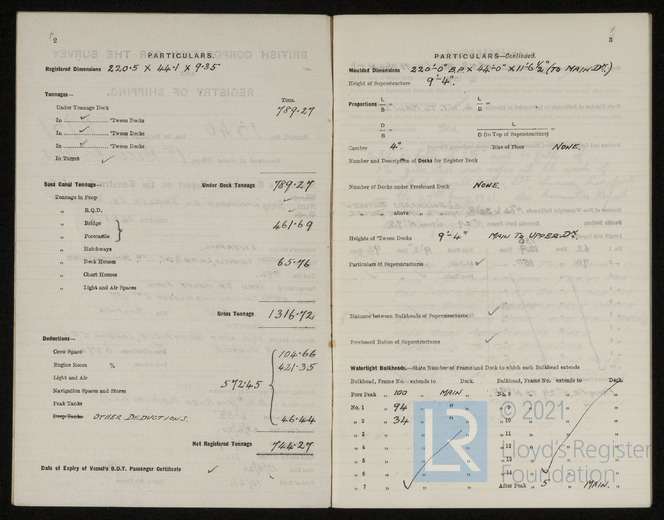 2
PARTICULARS.
Registered Dimensions 220.5 X 44.1 X 9.35
Tonnages—
Tons.
Under Tonnage Deck 789.27
In ✓ 'Tween Decks
In ✓ 'Tween Decks
In ✓ 'Tween Decks
In Target ✓
Suez Canal Tonnage— Under Deck Tonnage 789.27
Tonnage in Poop
„ R.Q.D.
„ Bridge 461.69
„ Forecastle
„ Hatchways
„ Deck Houses 65.76
„ Chart Houses
„ Light and Air Spaces
Gross Tonnage 1316.72
Deductions—
Crew Space 104.66
Engine Room % 421.35
Light and Air
Navigation Spaces and Stores 572.45
Peak Tanks
Deep Tanks OTHER DEDUCTIONS. 46.44
Net Registered Tonnage 744.27
Date of Expiry of Vessel's B.O.T. Passenger Certificate ✓
3
PARTICULARS—Continued.
Moulded Dimensions 220'-0" B.P. X 44'-0" X 11'-6½" (TO MAIN DK.)
Height of Superstructure 9'-4".
Proportions L/B L/D
D/B L/D (to Top of Superstructure)
Camber 4". Rise of Floor NONE.
Number and Description of Decks for Register Book
Number of Decks under Freeboard Deck NONE.
„ „ above „ „
Heights of 'Tween Decks 9'-4" MAIN TO UPPER DK.
Particulars of Superstructures ✓
Distance between Bulkheads of Superstructures ✓
Freeboard Ratios of Superstructures ✓
Watertight Bulkheads.—State Number of Frame and Deck to which each Bulkhead extends
Bulkhead, Frame No. - extends to Deck. Bulkhead, Frame No. - extends to Deck.
Fore Peak „ 100 MAIN „ No. 8
No. 1 „ 94 „ 9
„ 2 „ 34 „ 10
„ 3 „ 11
„ 4 „ 12
„ 5 „ 13
„ 6 „ 14
„ 7 ✓ After Peak „ 5 MAIN. „
LR
© 2021
Lloyd's Register
Foundation